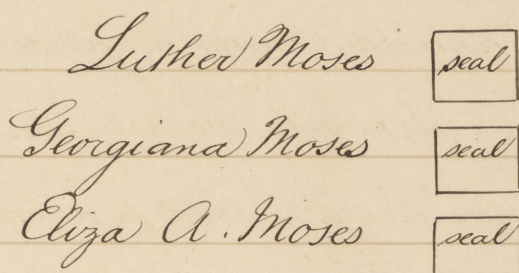 Luther Moses seal
Georgiana Moses seal
Eliza A. Moses seal